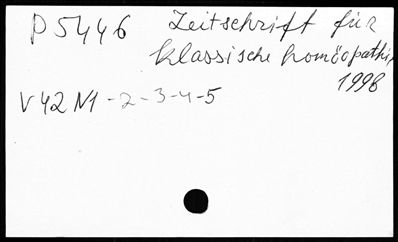 P5446 Zeitschrift für
klassische homöopathie
1998
V42 N1-2-3-4-5